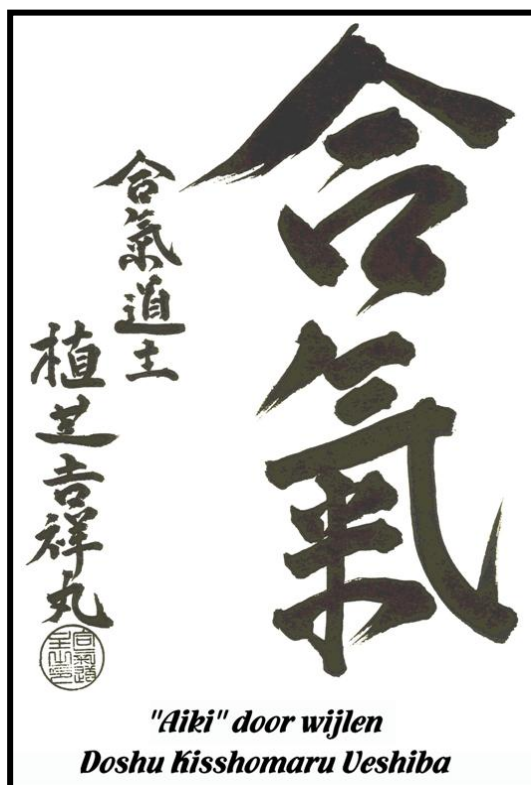 合氣
合氣道主
植芝吉祥丸
"Aiki" door wijlen
Doshu Kisshomaru Ueshiba